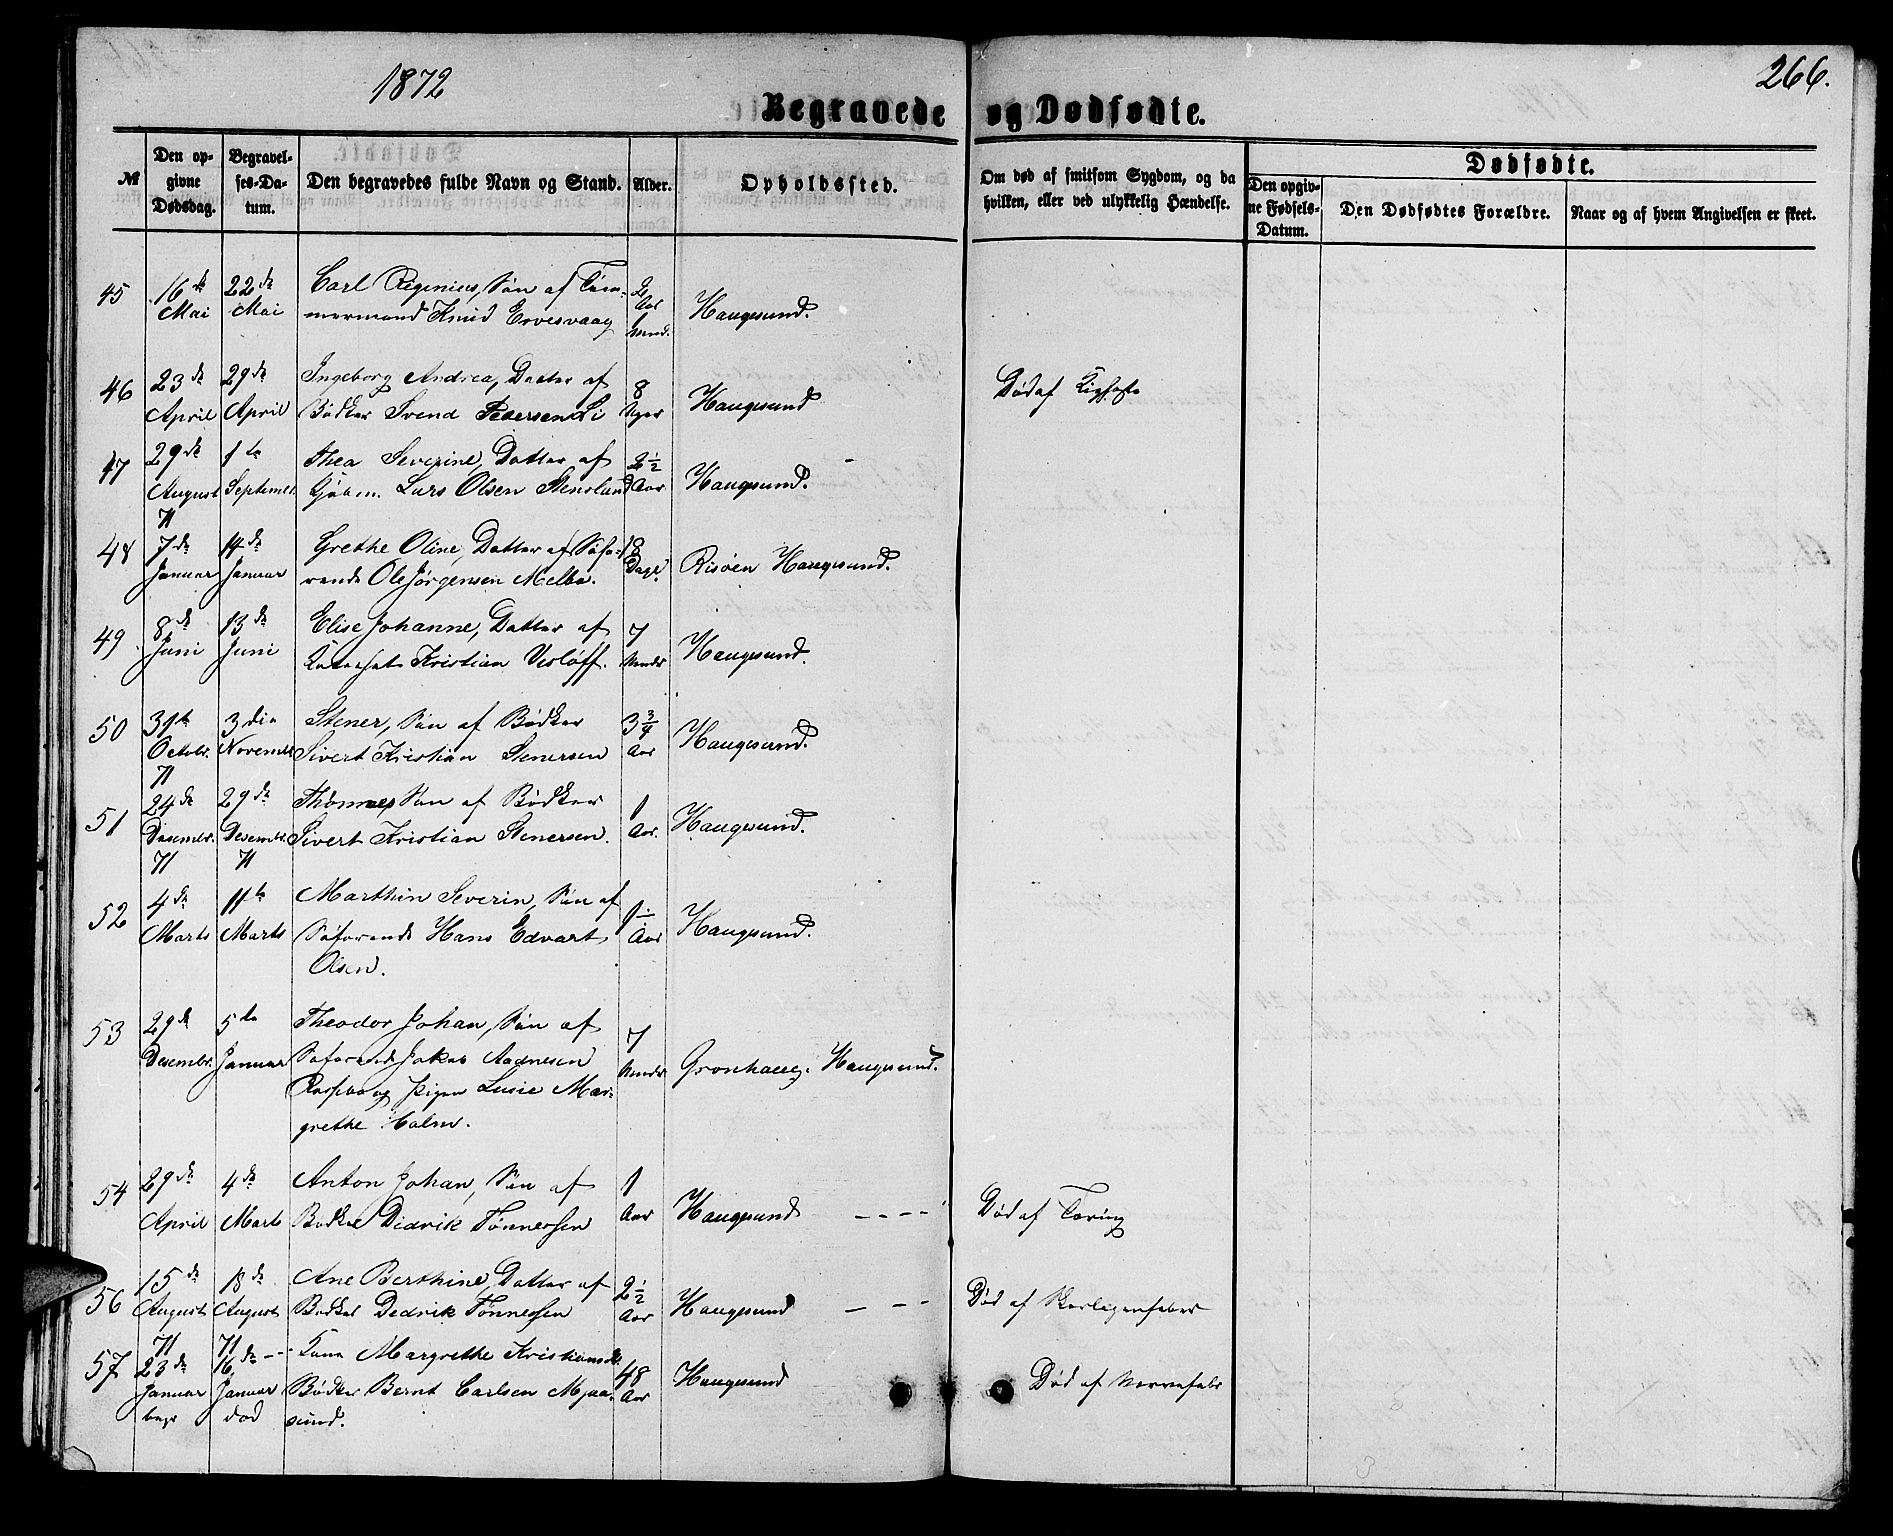 1872
266.
Begravede og Dødfødte.
№
Den opgivne Dødsdag.
Begravelses-Datum.
Den begravedes fulde Navn og Stand.
Alder.
Opholdssted.
Om død af smitsom Sygdom, og da
hvilken, eller ved ulykkelig Hændelse.
Dødfødte.
Den opgivne Fødsels-Datum.
Den Dødfødtes Forældre.
Naar og af hvem Angivelsen er skeet.
45 16de Mai 22de Mai Carl Regenius, Søn af Tømmermand Knud Ervesvaag 2 Aar 1 Mnd. Haugesund.
46 23de April 29de April Ingeborg Andrea, Datter af Bødker Svend Pedersen Li 8 Uger Haugesund Død af
47 29de August 71 1te Septemer Thea Severine, Datter af Lars Olsen Stensland 2½ Aar Haugesund.
48 7de Januar 14de Januar Grethe Oline, Datter af Søfarende Ole Jørgensen Melbø. 18 Dage. Risøen Haugesund.
49 8de Juni 13de Juni Elise Johanne, Datter af Kristian Visløff. 7 Mndr Haugesund.
50 31te Octobr. 71 3die Novembr Stener, Søn af Bødker Sivert Kristian Stenersen 3¾ Aar Haugesund.
51 24de Desembr. 71 29de Desembr. 71 Thomas, Søn af Bødker Sivert Kristian Stenersen. 1 Aar. Haugesund.
52 4de Marts 11te Marts Marthin Severin, Søn af Søfarende Hans Edvart Olsen. Aar Haugesund.
53 29de Desembr. 5te Januar Theodor Johan, Søn af Søfarende Jakob Aadnesen og Pigen Lusie Margrethe Holm. 7 Mndr Grønhaug. Haugesund.
54 29de April 4de Marts Anton Johan, Søn af Bødker Didrik Tønnessen 1 Aar Haugesund - - - - Død af Tæring
56 15de August 71 18de August 71 Ane Berthine, Datter af Bødker Dedrik Tønnessen 2½ Aar Haugesund - - - Død af Skarlagensfeber
57 23de Januar begr 16de Januar død -- Margrethe Kristiansdt. Bødker Bernt Carlsen Mjaasund. 48 Aar Haugesund Død af Nervefeber